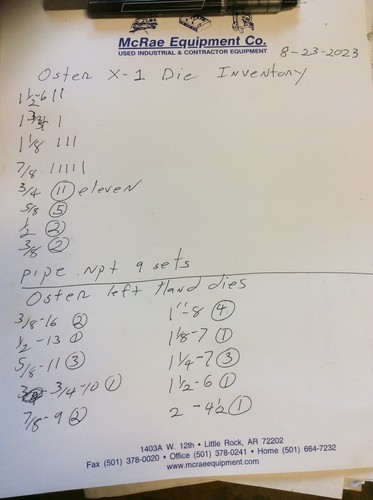 McRae Equipment Co.
USED INDUSTRIAL & CONTRACTOR EQUIPMENT
8-23-2023
Oster X-1 Die Inventory
1 1/2-6 11
1 3/4 1
1 1/8 111
7/8 - 11111
3/4 (11) eleven
5/8 (5)
1/2 (2)
3/8 (2)
pipe npt 9 sets
Oster left Hand dies
3/8-16 (2)
1/2 -13 (1)
5/8 -11 (3)
3/4-10 (1)
7/8 - 9 (2)
1"-8 (4)
1 1/8-7 (1)
1 1/4-7 (3)
1 1/2-6 (1)
2 - 4 1/2 (1)
1403A W. 12th • Little Rock, AR 72202
Fax (501) 378-0020 • Office (501) 378-0241 • Home (501) 664-7232
www.mcraeequipment.com